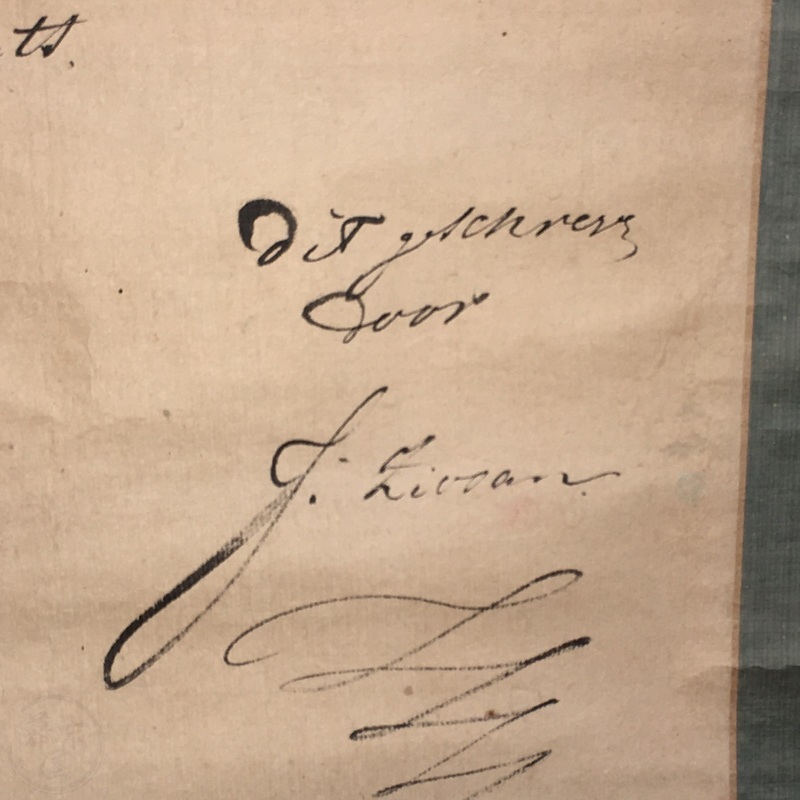 Dit geschreven
door
J: Ziosan.